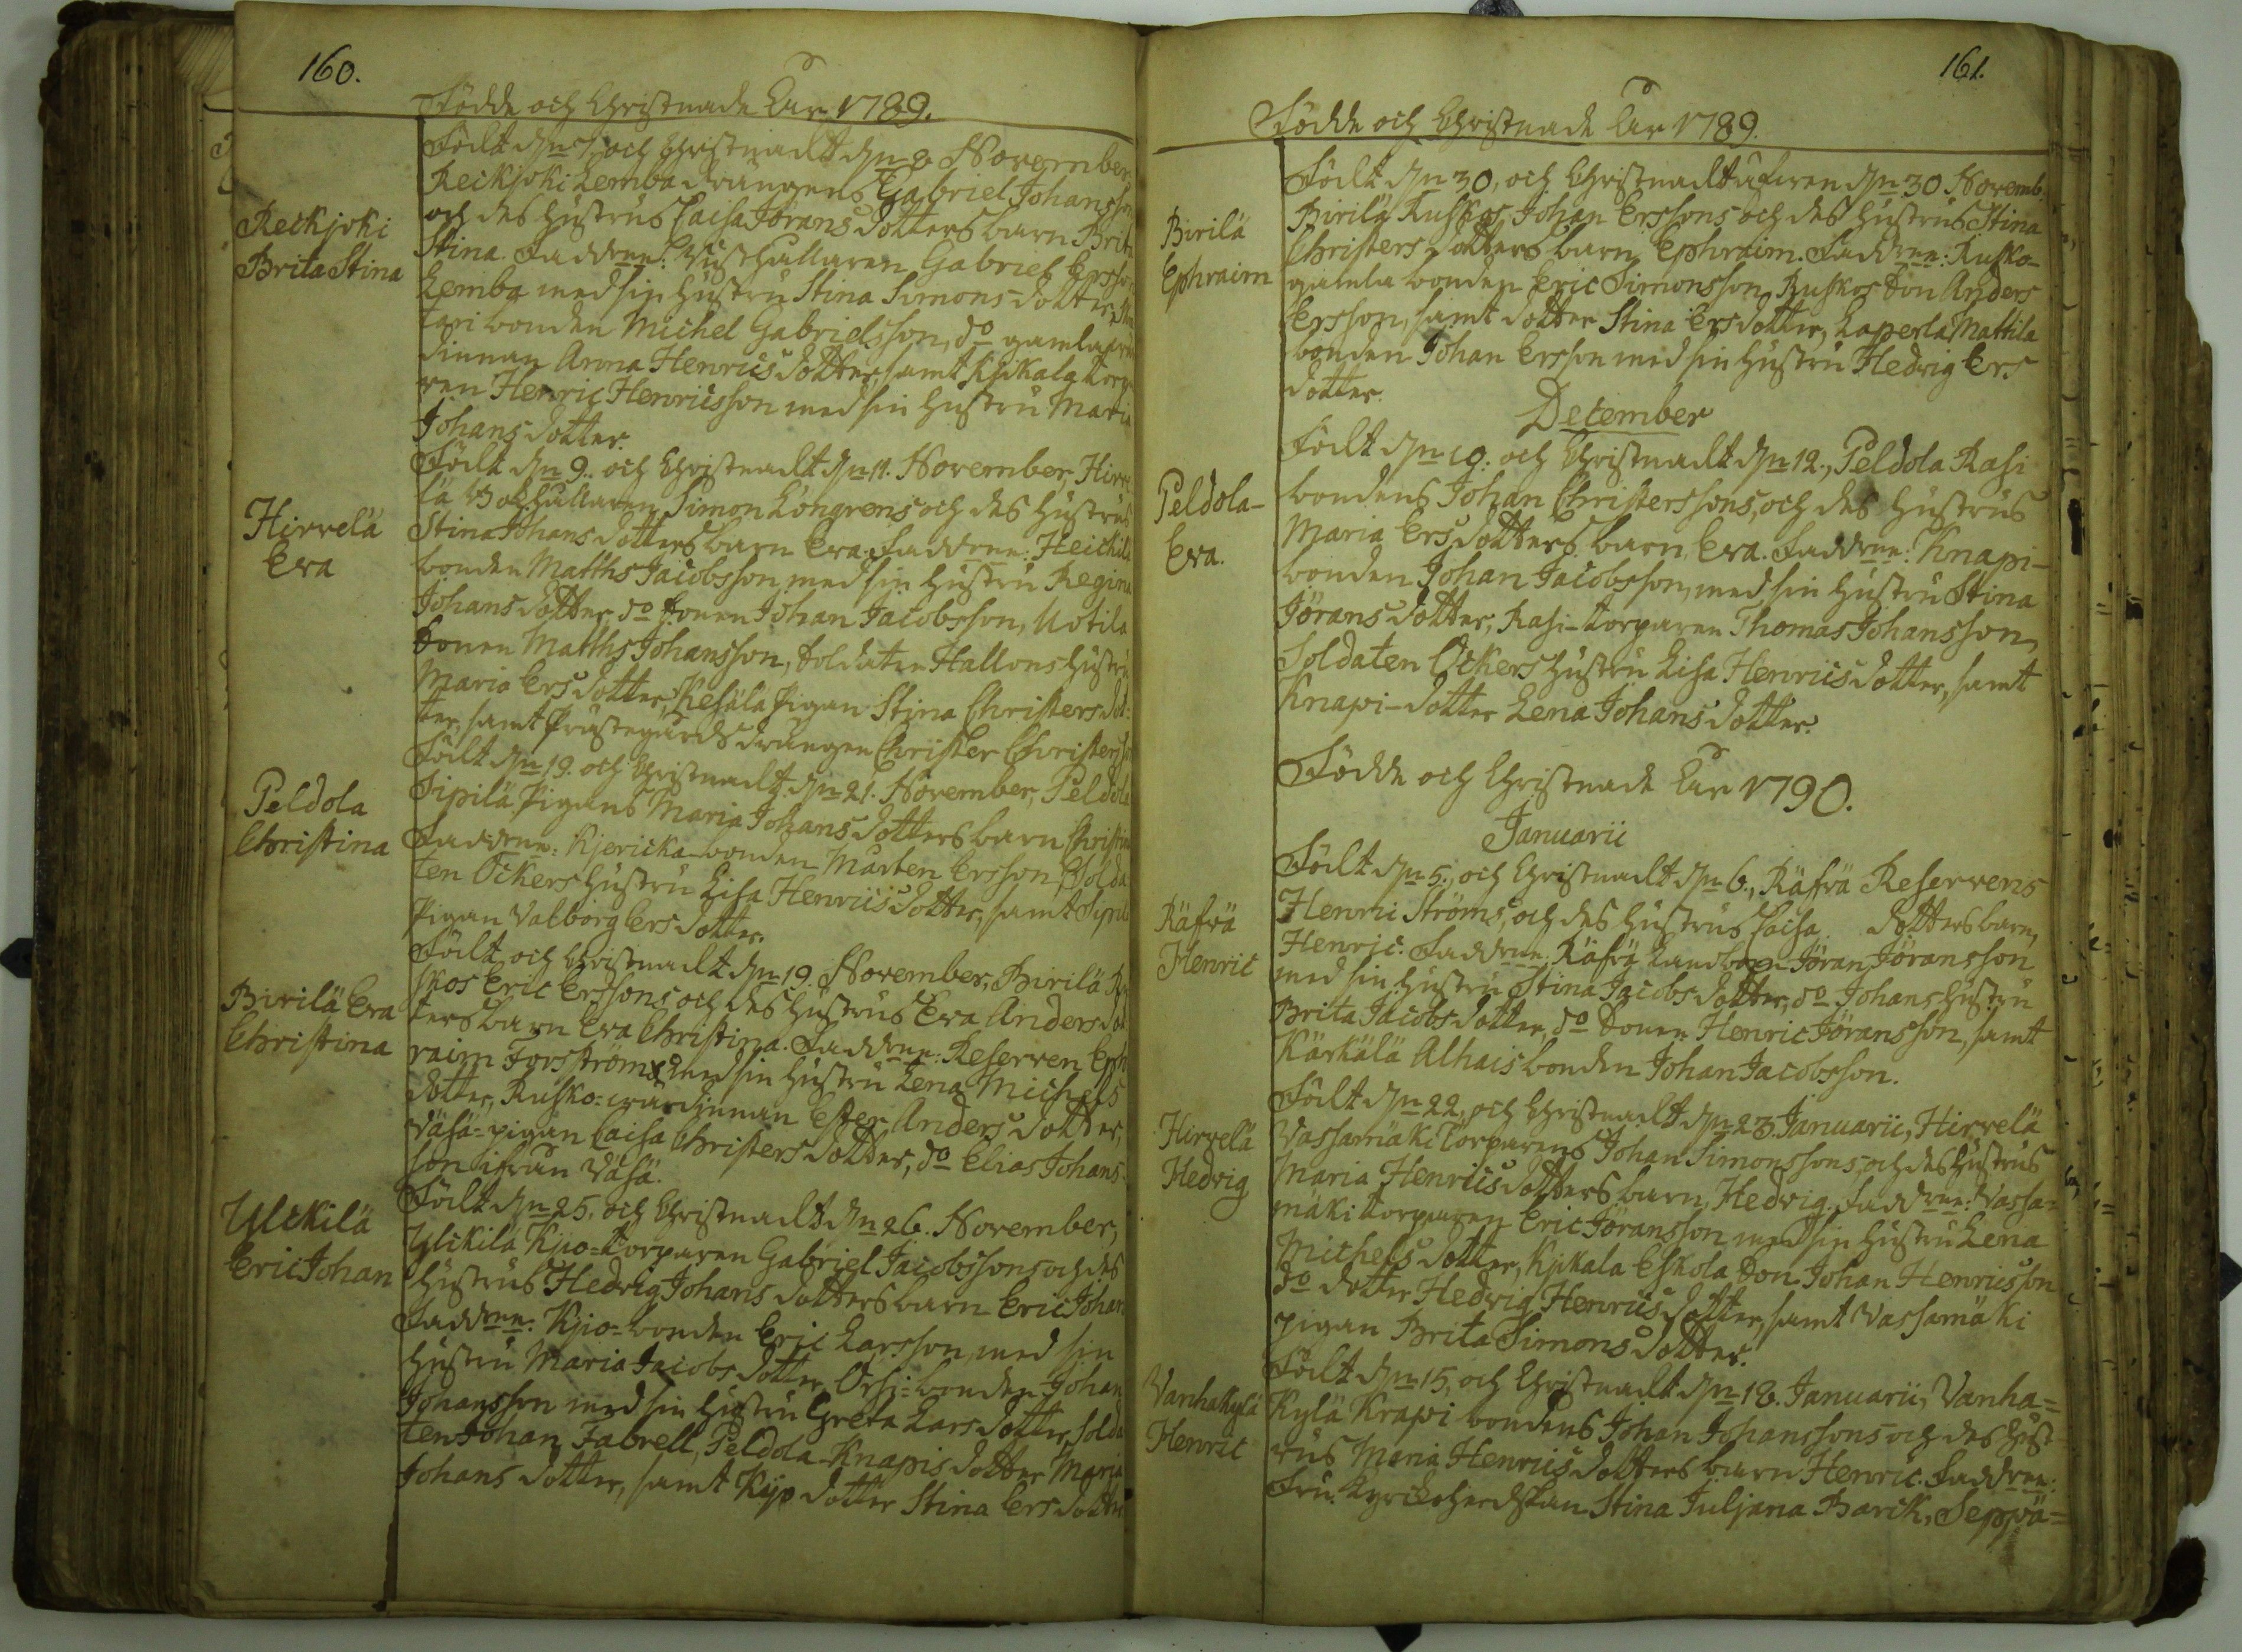 160.
Födde och Christnade Åhr 1789.
Reckjoki
Brita Stina
Födt d. 7. och Christnadt d. 8. November,
Reckjoki Lemba drängens Gabriel Johansson
och des hustrus Caisa Jörans dotters barn Brita
Stina. Faddrar: Gabriel Ersson
Lemba med sin hustru Stina Simons dotter,
tari bonden Michel Gabrielsson, do gamla
dinnan Anna Henrics dotter, samt Kjikala torpa
ren Henric Henricsson med sin hustru Maria
Johans dotter.
Hirvelä
Eva
Födt d. 9. och Christnadt d. 11. November, Hirve
lä Bokhållaren Simon Longrens och des hustrus
Stina Johans dotters barn Eva. Faddrar: Heickilä
bonden Matths Jacobsson, med sin hustru Regina
Johans dotter, do sonen Johan Jacobsson, Uotila
sonen Matths Johansson, Soldaten Hallons hustru
Maria Ers dotter, Kesälä pigan Stina Christers dot-
ter, samt Prästegårds drängen Christer Christersson
Peldola
Christina
Födt d. 19. och Christnadt d. 21. November, Peldola
Sipilä pigans Maria Johans dotters barn Christina
Faddrar: Kjericka bonden Mårten Ersson, Solda
ten Öckers hustru Lisa Henrics dotter, samt Sipilä
pigan Valborg Ers dotter.
Birilä Eva
Christina
Födt och Christnadt d. 19. November, Birilä Ru
skos Eric Erssons och des hustrus Eva Anders dot
ters barn Eva Christina. Faddrar: Reserven Eph
raim Forsström med sin hustru Lena Michels
dotter, Rusko-wärdinnan Ester Anders dotter,
Väsä-pigan Caisa Christers dotter, do Elias Johans-
son ifrån Väsä.
Ylickilä
Eric Johan
Födt d. 25. och Christnadt d. 26. November,
Ylickilä Kjio-torparen Gabriel Jacobssons och des
hustrus Hedvig Johans dotters barn Eric Johan
Faddrar: Kjio-bonden Eric Larsson med sin
hustru Maria Jacobs dotter, Orsi-bonden Johan
Johansson med sin hustru Greta Lars dotter, Solda
ten Johan Fabrell, Peldola Knapis dotter Maria
Johans dotter, samt Kijo dotter Stina Ers dotter
161.
Födde och Christnade Åhr 1789.
Birilä
Ephraim
Födt d. 30. och Christnadt d. 30 Novemb.
Birilä Ruskos Johan Erssons och des hustrus Stina
Christers dotters barn Ephraim. Faddrar: Rusko-
gamla bonden Eric Simonsson, Ruskos son Anders
Ersson, samt dotter Stina Ers dotter, Laperla Mattila
bonden Johan Ersson med sin hustru Hedvig Ers
dotter.
December
Peldola-
Eva.
Födt d. 10. och Christnadt d. 12., Peldola Rasi
bondens Johan Christerssons, och des hustrus
Maria Ers dotters barn, Eva. Faddrar: Knapi-
bonden Johan Jacobsson, med sin hustru Stina
Jörans dotter, Rasi-torparen Thomas Johansson,
Soldaten Öckers hustru Lisa Henrics dotter, samt
Knapi-dotter Lena Johans dotter.
Födde och Christnade Åhr 1790.
Januarii
Räfvä
Henric
Födt d. 5., och Christnadt d. 6., Räfvä Reservens
Henric Ströms, och des hustrus Caisa dotters barn,
Henric. Faddrar: Räfvä Landbon Jöran Jöransson
med sin hustru Stina Jacobs dotter, do Johans hustru
Brita Jacobs dotter, do sonen Henric Jöransson, samt
Kärkälä Alhais bonden Johan Jacobsson.
Hirvelä
Hedvig
Födt d. 22, och Christnadt d. 23. Januarii, Hirvelä
Vassamäki torparens Johan Simonssons, och des hustrus
Maria Henrics dotters barn, Hedvig. Faddrar: Vassa-
mäki torparen Eric Jöransson med sin hustru Lena
Michels dotter, Kjikala Eskola son Johan Henricsson
do dotter Hedvig Henrics dotter, samt Vassamäki
pigan Brita Simons dotter.
Vanhakylä
Henric
Födt d. 15, och Christnadt d. 18. Januarii, Vanha=
Kylä Krapi bondens Johan Johanssons och des hust
rus Maria Henrics dotters barn Henric. Faddrar:
Fru Kyrckoherdskan Stina Juljana Barck, Seppä=